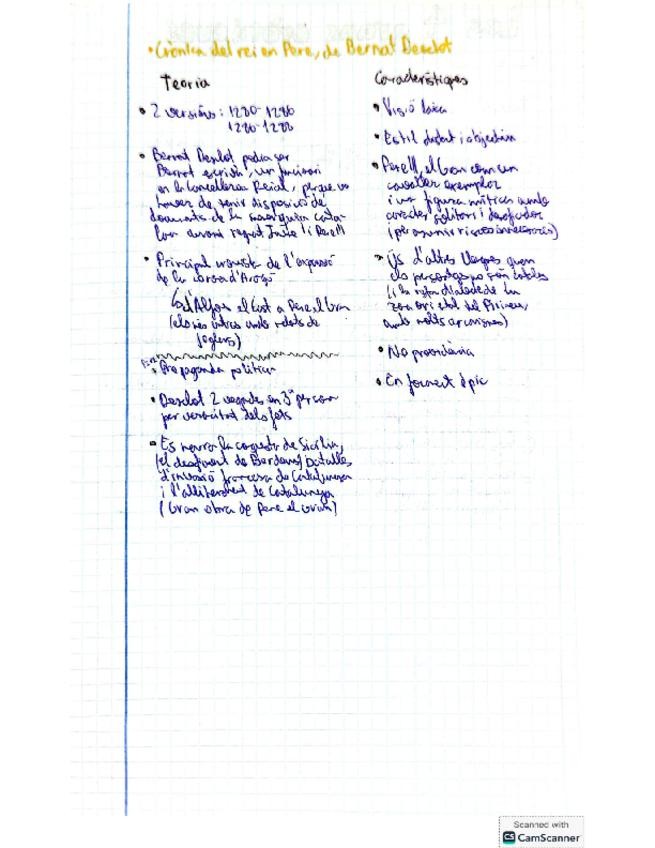 • Crònica del rei en Pere, de Bernat Desclot
Teoria
• 2 versions: 1280-1286
1280-1288
• Bernat Desclot podia ser
Bernat escrivà, un funcionari
en la Cancelleria Reial, perquè va
haver de tenir disposició de
documents de la
durant regnat Jaume I i Pere II
• Principal cronista de l'expansió
de la corona d'Aragó
d'Alfons el Cast a Pere el Gran
amb relats de
joglars)
• Propaganda política
• Desclot 2 vegades en 3ª persona
per veracitat dels fets
• Es narra la conquesta de Sicília,
el desafiament de Bordeus, batalles
d'invasió francesa de Catalunya
i l'alliberament de Catalunya
(Gran obra de Pere el Gran)
Característiques
• Visió laica
• Estil distant i objectiu
• Pere II, el Gran com un
cavaller exemplar
i una figura mítica amb
caràcter solitari i
(per assumir riscos innecessaris)
• Ús d'altres llengües quan
els personatges no són catalans
del Pirineu,
amb molts arcaismes)
• No providència
• En format èpic
Scanned with
CS CamScanner